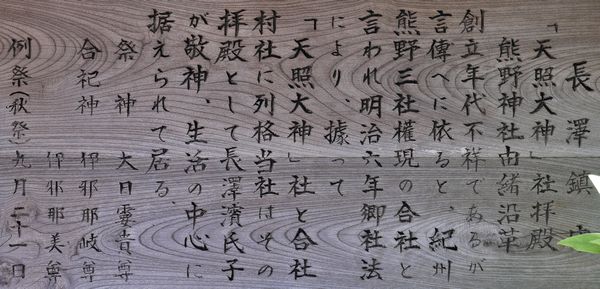 長澤鎮
「天照大神」社拝殿
熊野神社由緒沿革
創立年代不祥であるが
言傳へに依ると、紀州
熊野三社權現の合社と
言われ明治六年郷社法
により、據って
「天照大神」社と合社
村社に列格当社はその
拝殿として長澤濱氏子
が敬神、生活の中心に
据えられて居る、
祭神 大日孁貴尊
合祀神 伊邪那岐尊
伊邪那美尊
例祭(秋祭)九月二十一日